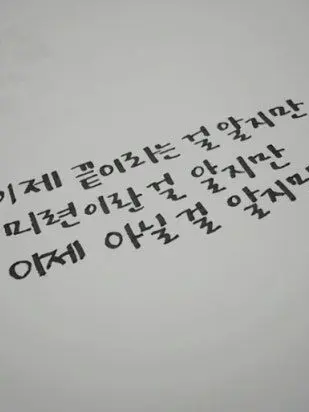 이제 끝이라는 걸 알지만
미련이란 걸 알지만
이제 아닐 걸 알지만